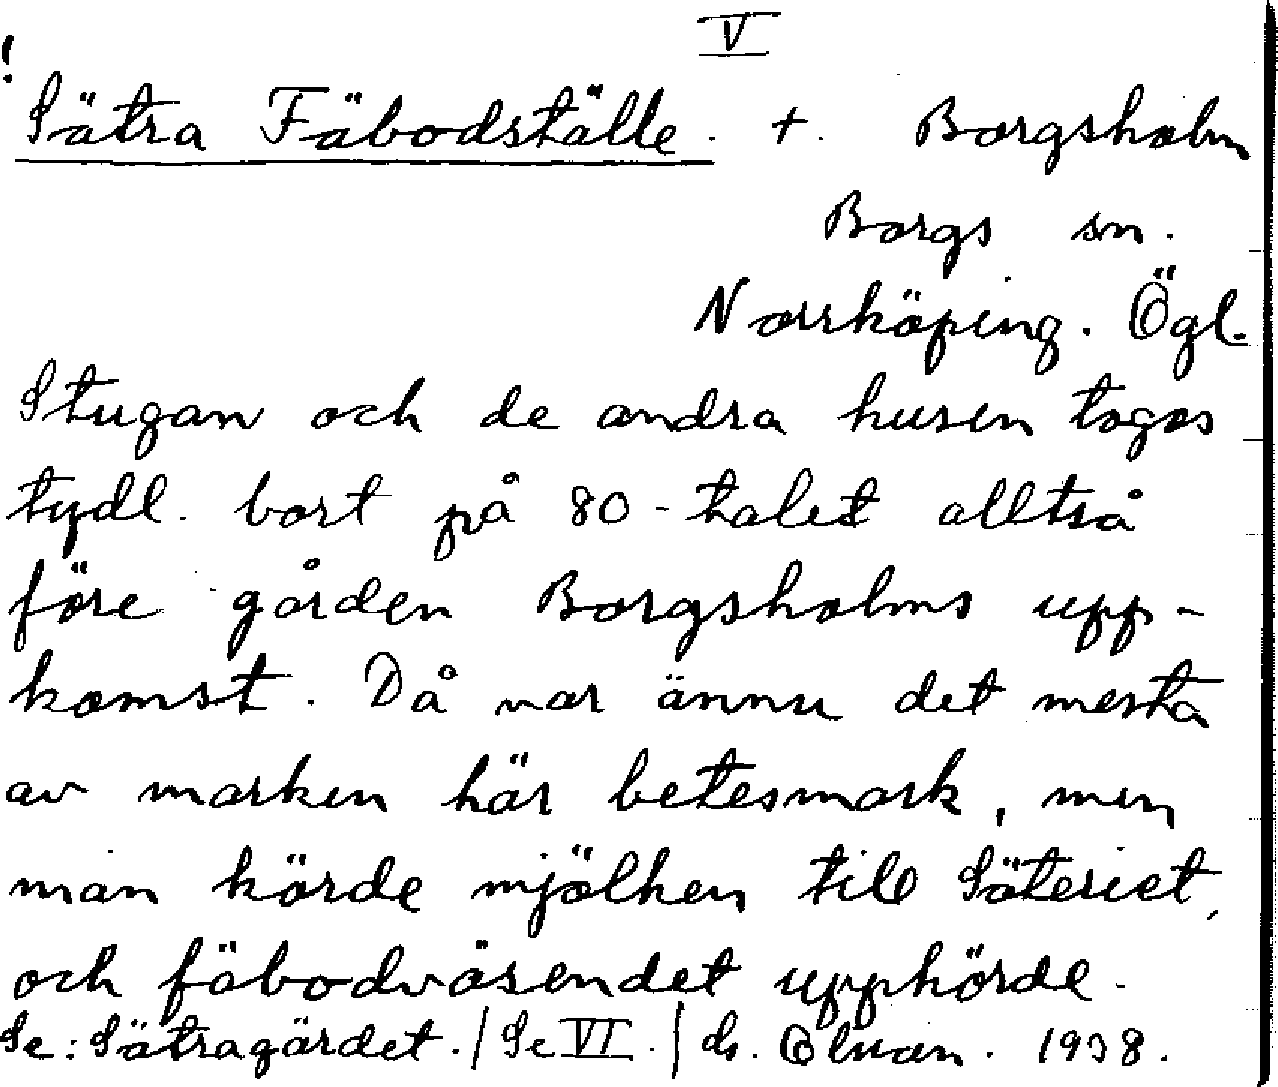 V
! Sätra Fäbodställe. +. Borgsholm
Borgs sn.
Norrköping. Ögl.
Stugan och de andra husen togos
tydl. bort på 80-talet alltså
före gården Borgsholms upp-
komst. Då var ännu det mesta
av marken här betesmark, men
man körde mjölken till Säteriet,
och fäbodväsendet upphörde.
Se: Sätragärdet. / Se VI. /
1938.